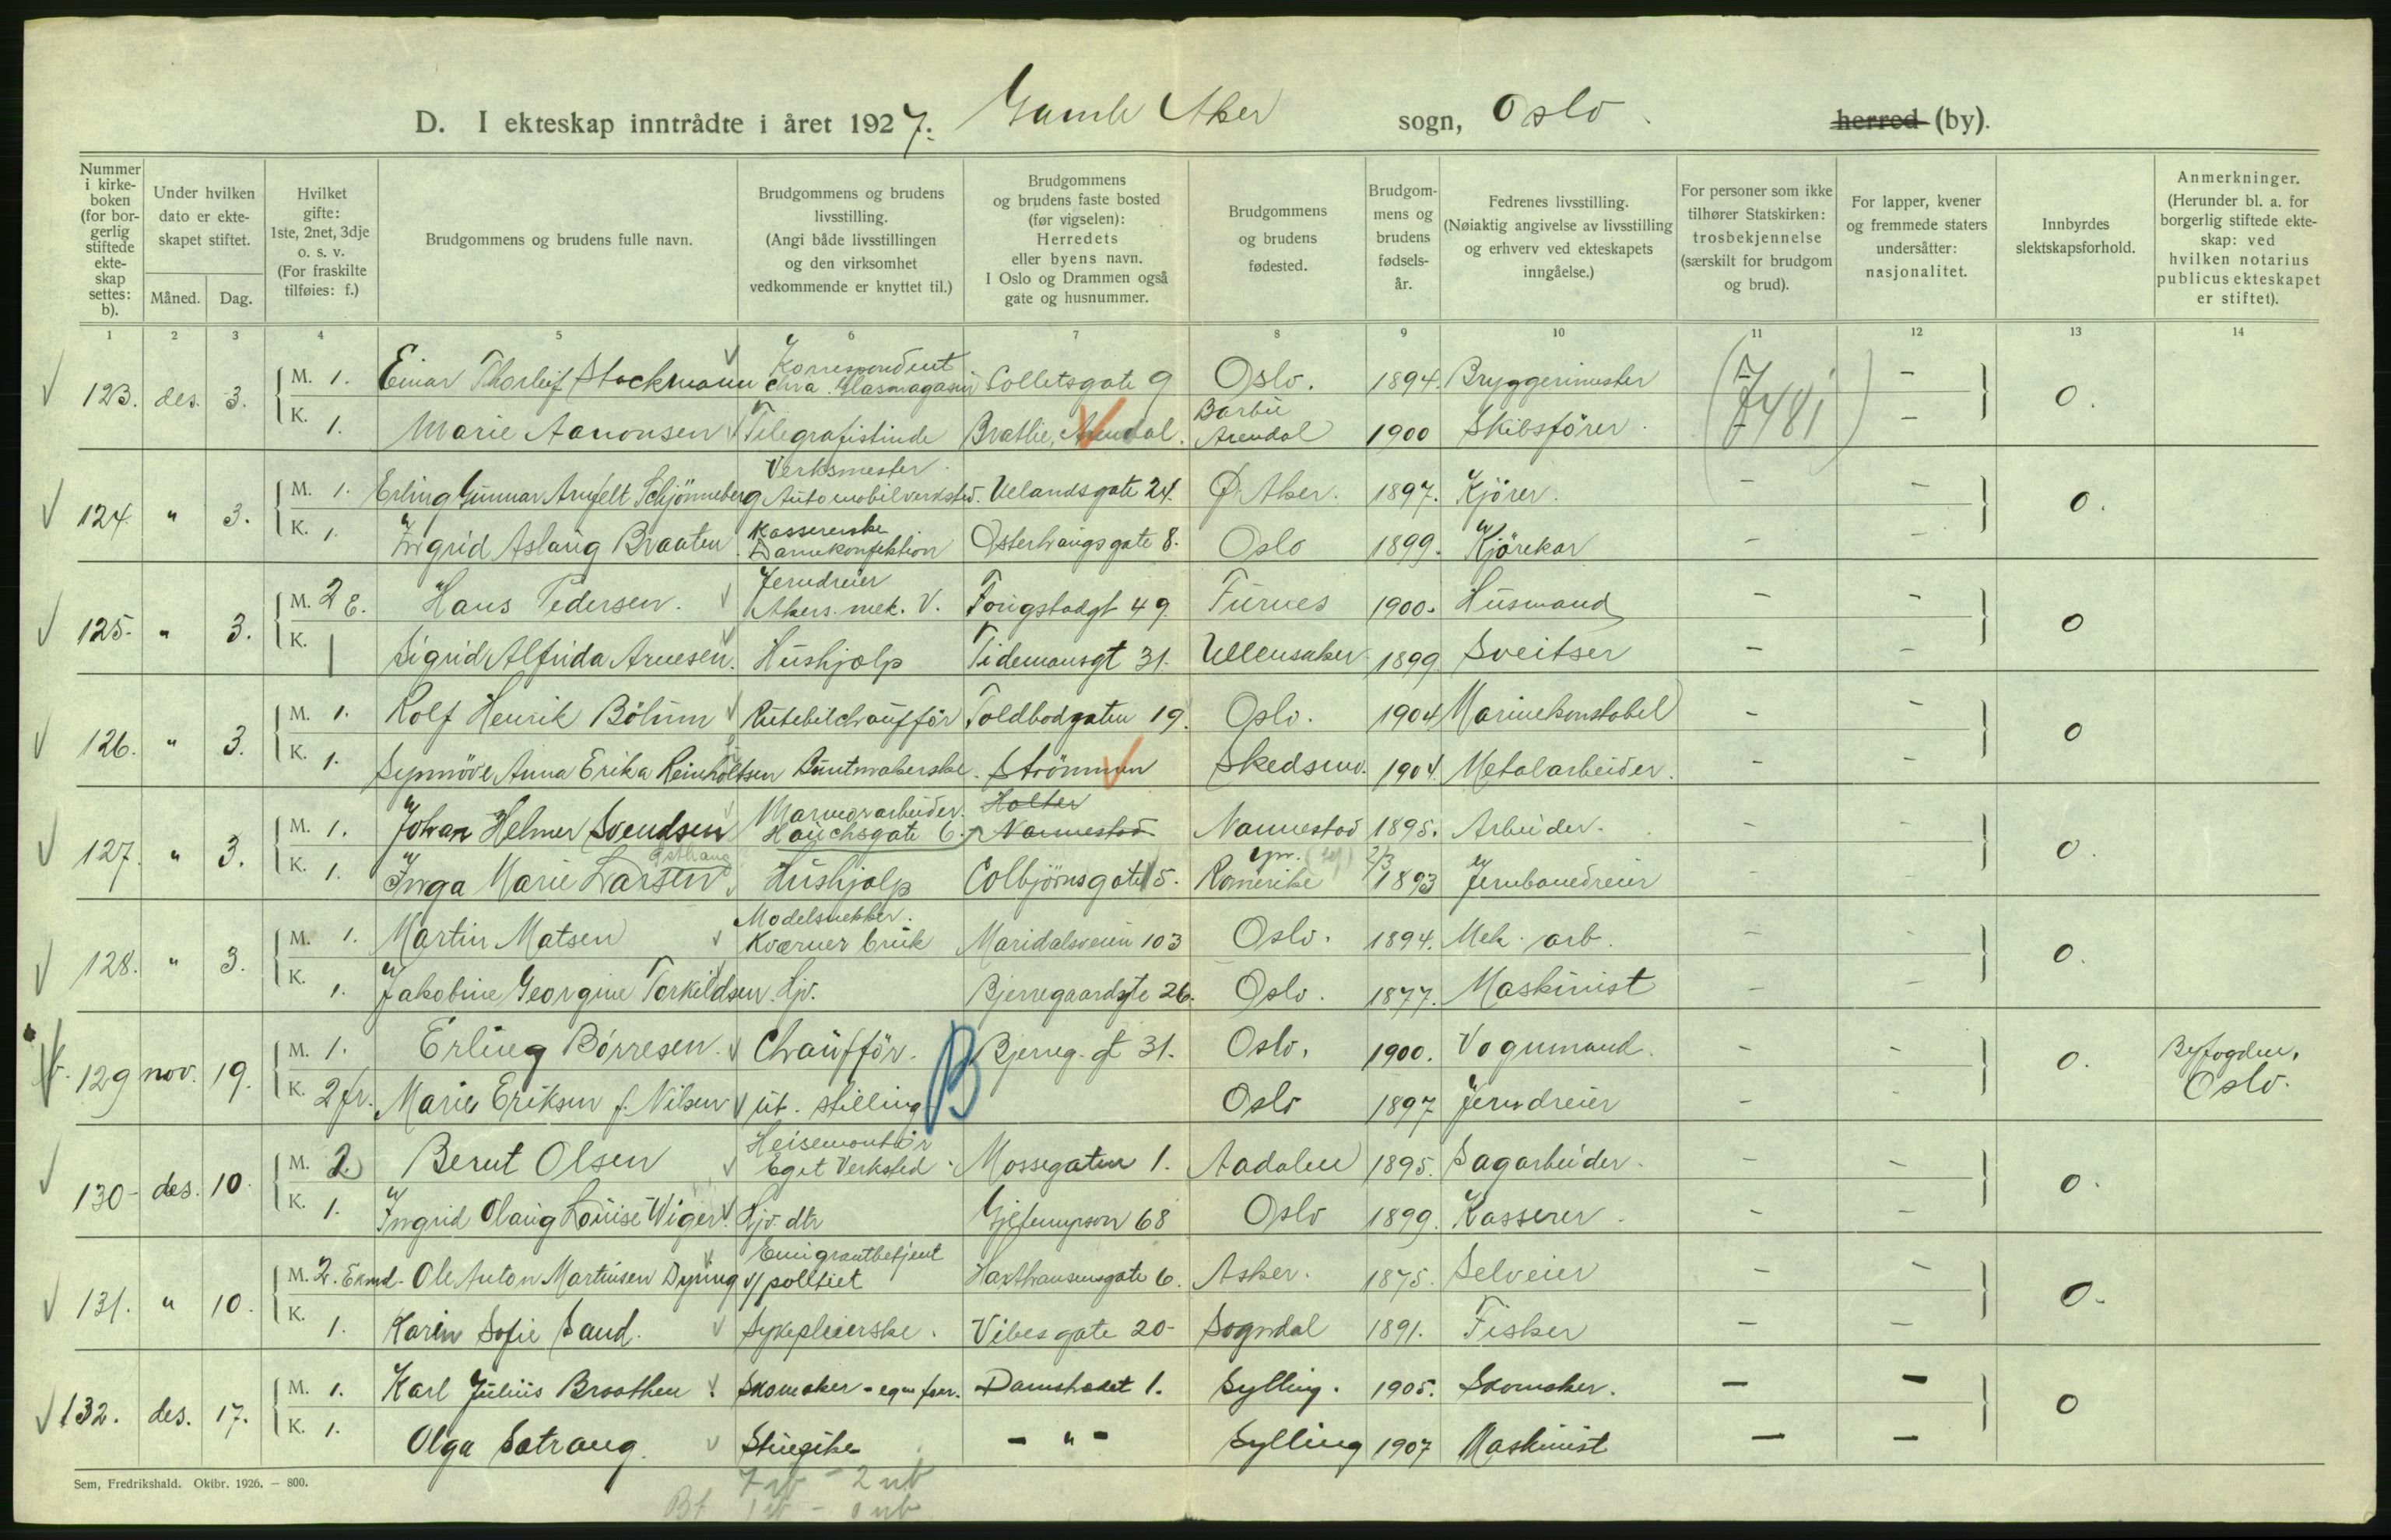 D. I ekteskap inntrådte i året 1927. Gamle Aker sogn, Oslo. herred (by).
Nummer i kirkeboken (for borgerlig stiftede ekteskap settes: b).
Under hvilken dato er ekteskapet stiftet.
Måned. Dag.
Hvilket gifte: 1ste, 2net, 3dje o. s. v. (For fraskilte tilføies: f.)
Brudgommens og brudens fulle navn.
Brudgommens og brudens livsstilling. (Angi både livsstillingen og den virksomhet vedkommende er knyttet til.)
Brudgommens og brudens faste bosted (før vigselen): Herredets eller byens navn. I Oslo og Drammen også gate og husnummer.
Brudgommens og brudens fødested.
Brudgommens og brudens fødselsår.
Fedrenes livsstilling. (Nøiaktig angivelse av livsstilling og erhverv ved ekteskapets inngåelse.)
For personer som ikke tilhører Statskirken: trosbekjennelse (særskilt for brudgom og brud).
For lapper, kvener og fremmede staters undersåtter: nasjonalitet.
Innbyrdes slektskapsforhold.
Anmerkninger. (Herunder bl. a. for borgerlig stiftede ekteskap: ved hvilken notarius publicus ekteskapet er stiftet).
1 2 3 4 5 6 7 8 9 10 11 12 13 14
123. des. 3. M. 1. Einar Thorleif Stockmann Korrespondent Chra. Glasmagasin Colletsgate 9 Oslo. 1894. Bryggerimester - - 0.
K. 1. Marie Aanonsen Telegrafistinde Bratlie, Arendal. Barbu Arendal 1900 Skibsförer. 7481 -
124. " 3. M. 1. Erling Gunnar Arnfelt Schjönneberg Verksmester Automobilverksted. Uelandsgate 24. Ø. Aker. 1897. Kjörer. - - 0.
K. 1. Ingrid Aslaug Braaten Kassererske Damekonfektion Østerhaugsgate 8. Oslo 1899. Kjörekar - -
125. " 3. M. 2 E. Hans Pedersen. Jerndreier Akers mek. V. Tougstadgt 49. Furnes 1900. Husmand - - 0
K. 1 Sigrid Alfrida Arnesen. Hushjælp Tidemansgt 31. Ullensaker 1899. Sveitser - -
126. " 3. M. 1. Rolf Henrik Böhnn Rutebilchauffør Toldbodgaten 19. Oslo. 1904 Marinekonstabel - - 0
K. 1. Synnöve Anna Erika Reinholtsen Buntmakerske. Strömmen Skedsmo. 1904. Metalarbeider. - -
127. " 3. M. 1. Johan Helmer Svendsen Marmorarbeider. Hauchsgate 6. Holter Nannestad Nannestad 1895. Arbeider. - - 0.
K. 1. Inga Marie Larsen Østhaug Hushjælp Colbjörnsgate 15. Romerike 2/3 1893 Jernbanedreier - -
128. " 3. M. 1. Martin Matsen Modelsnekker. Kværner bruk Maridalsveien 103 Oslo. 1894. Mek. arb. - - 0.
K. 1. Jakobine Georgine Torkildsen. Hjv. Bjerregaardsgte 26. Oslo. 1877. Maskinist - -
129 nov. 19. M. 1. Erling Börresen. Chauffør. B Bjerreg. gt 31. Oslo. 1900. Vognmand. - - 0. Byfogden, Oslo.
K. 2 fr. Marie Eriksen f. Nilsen ut. stilling Oslo 1897 Jerndreier - -
130 - des. 10. M. 2. Bernt Olsen Heisemontör Eget Verksted. Mossegaten 1. Aadalen 1895. Sagarbeider. - - 0.
K. 1. Ingrid Olaug Louise Wiger. Hjv. dtr 68 Oslo 1899. Kasserer. - -
131. " 10. M. 2. Enkmd. Ole Anton Martinsen Dyring Emigrantbetjent v/ politiet Haxthausensgate 6. Asker. 1875. Selveier - - 0.
K. 1. Karin Sofie Sand. Sykepleierske. Vibesgate 20 - Sogndal 1891. Fisker - -
132. des. 17. M. 1. Karl Julius Braathen. Skomaker - egen forr. Damstredet 1. Sylling. 1905. Skomaker. - - 0
K. 1. Olga Sætrang. Stuepike - " - Sylling 1907 Maskinist - -
Sem, Fredrikshald. Oktbr. 1926. — 800.